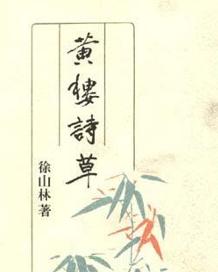 黄楼詩草
徐山林著